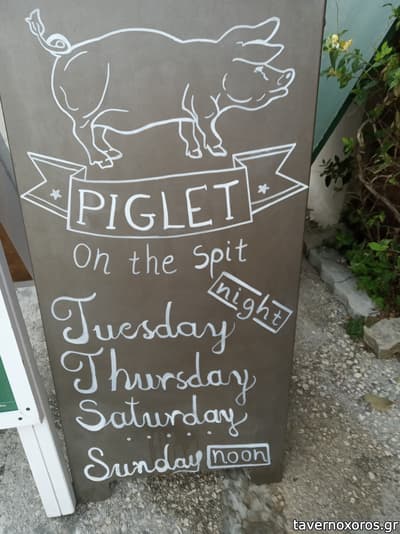 PIGLET
On the Spit
night
Tuesday
Thursday
Saturday
Sunday noon
tavernoxoros.gr